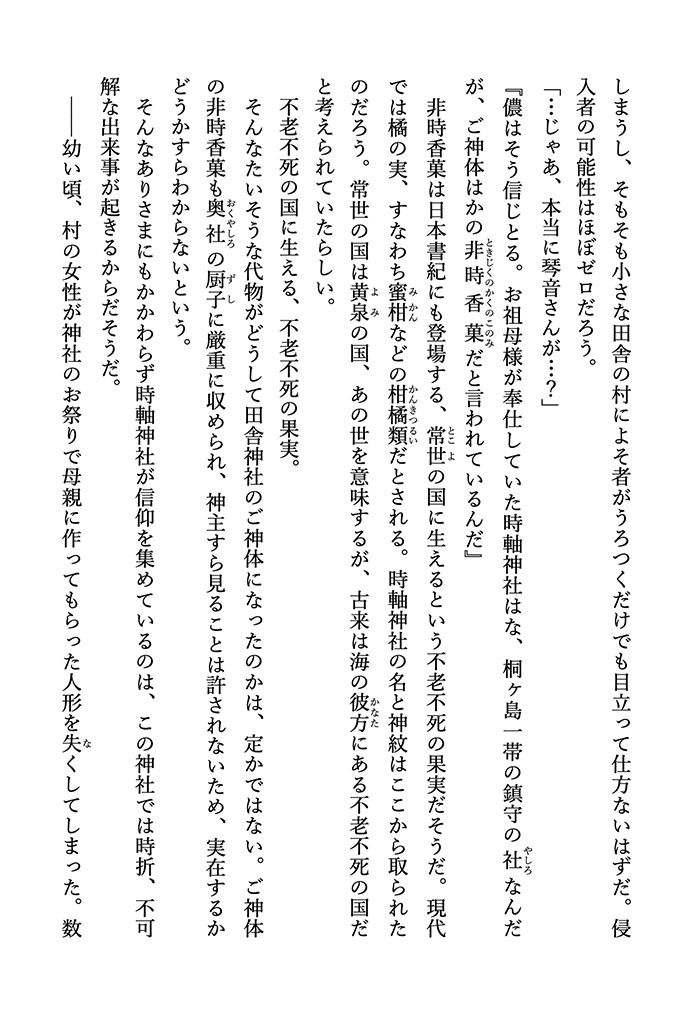 しまうし、そもそも小さな田舎の村によそ者がうろつくだけでも目立って仕方ないはずだ。侵
入者の可能性はほぼゼロだろう。
「…じゃあ、本当に琴音さんが…？」
『儂はそう信じとる。お祖母様が奉仕していた時軸神社はな、桐ヶ島一帯の鎮守の社なんだ
が、ご神体はかの非時香菓だと言われているんだ』
非時香菓は日本書紀にも登場する、常世の国に生えるという不老不死の果実だそうだ。現代
では橘の実、すなわち蜜柑などの柑橘類だとされる。時軸神社の名と神紋はここから取られた
のだろう。常世の国は黄泉の国、あの世を意味するが、古来は海の彼方にある不老不死の国だ
と考えられていたらしい。
不老不死の国に生える、不老不死の果実。
そんなたいそうな代物がどうして田舎神社のご神体になったのかは、定かではない。ご神体
の非時香菓も奥社の厨子に厳重に収められ、神主すら見ることは許されないため、実在するか
どうかすらわからないという。
そんなありさまにもかかわらず時軸神社が信仰を集めているのは、この神社では時折、不可
解な出来事が起きるからだそうだ。
――幼い頃、村の女性が神社のお祭りで母親に作ってもらった人形を失くしてしまった。数